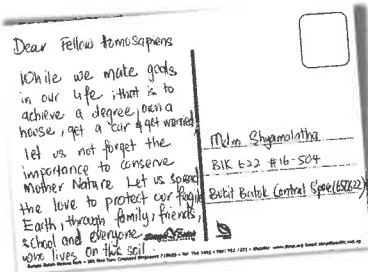 Dear Fellow Homosapiens
While we make goals
in our life, that is to
achieve a degree, own a
house, get a car & get married,
let us not forget the
importance to conserve
Mother Nature Let us spread
the love to protect our fragile
Earth, through family, friends,
school and everyone
who lives on this soil.
Mdm Shyamalatha
Blk 622 #16-504
Bukit Batok Central Spore (650622)